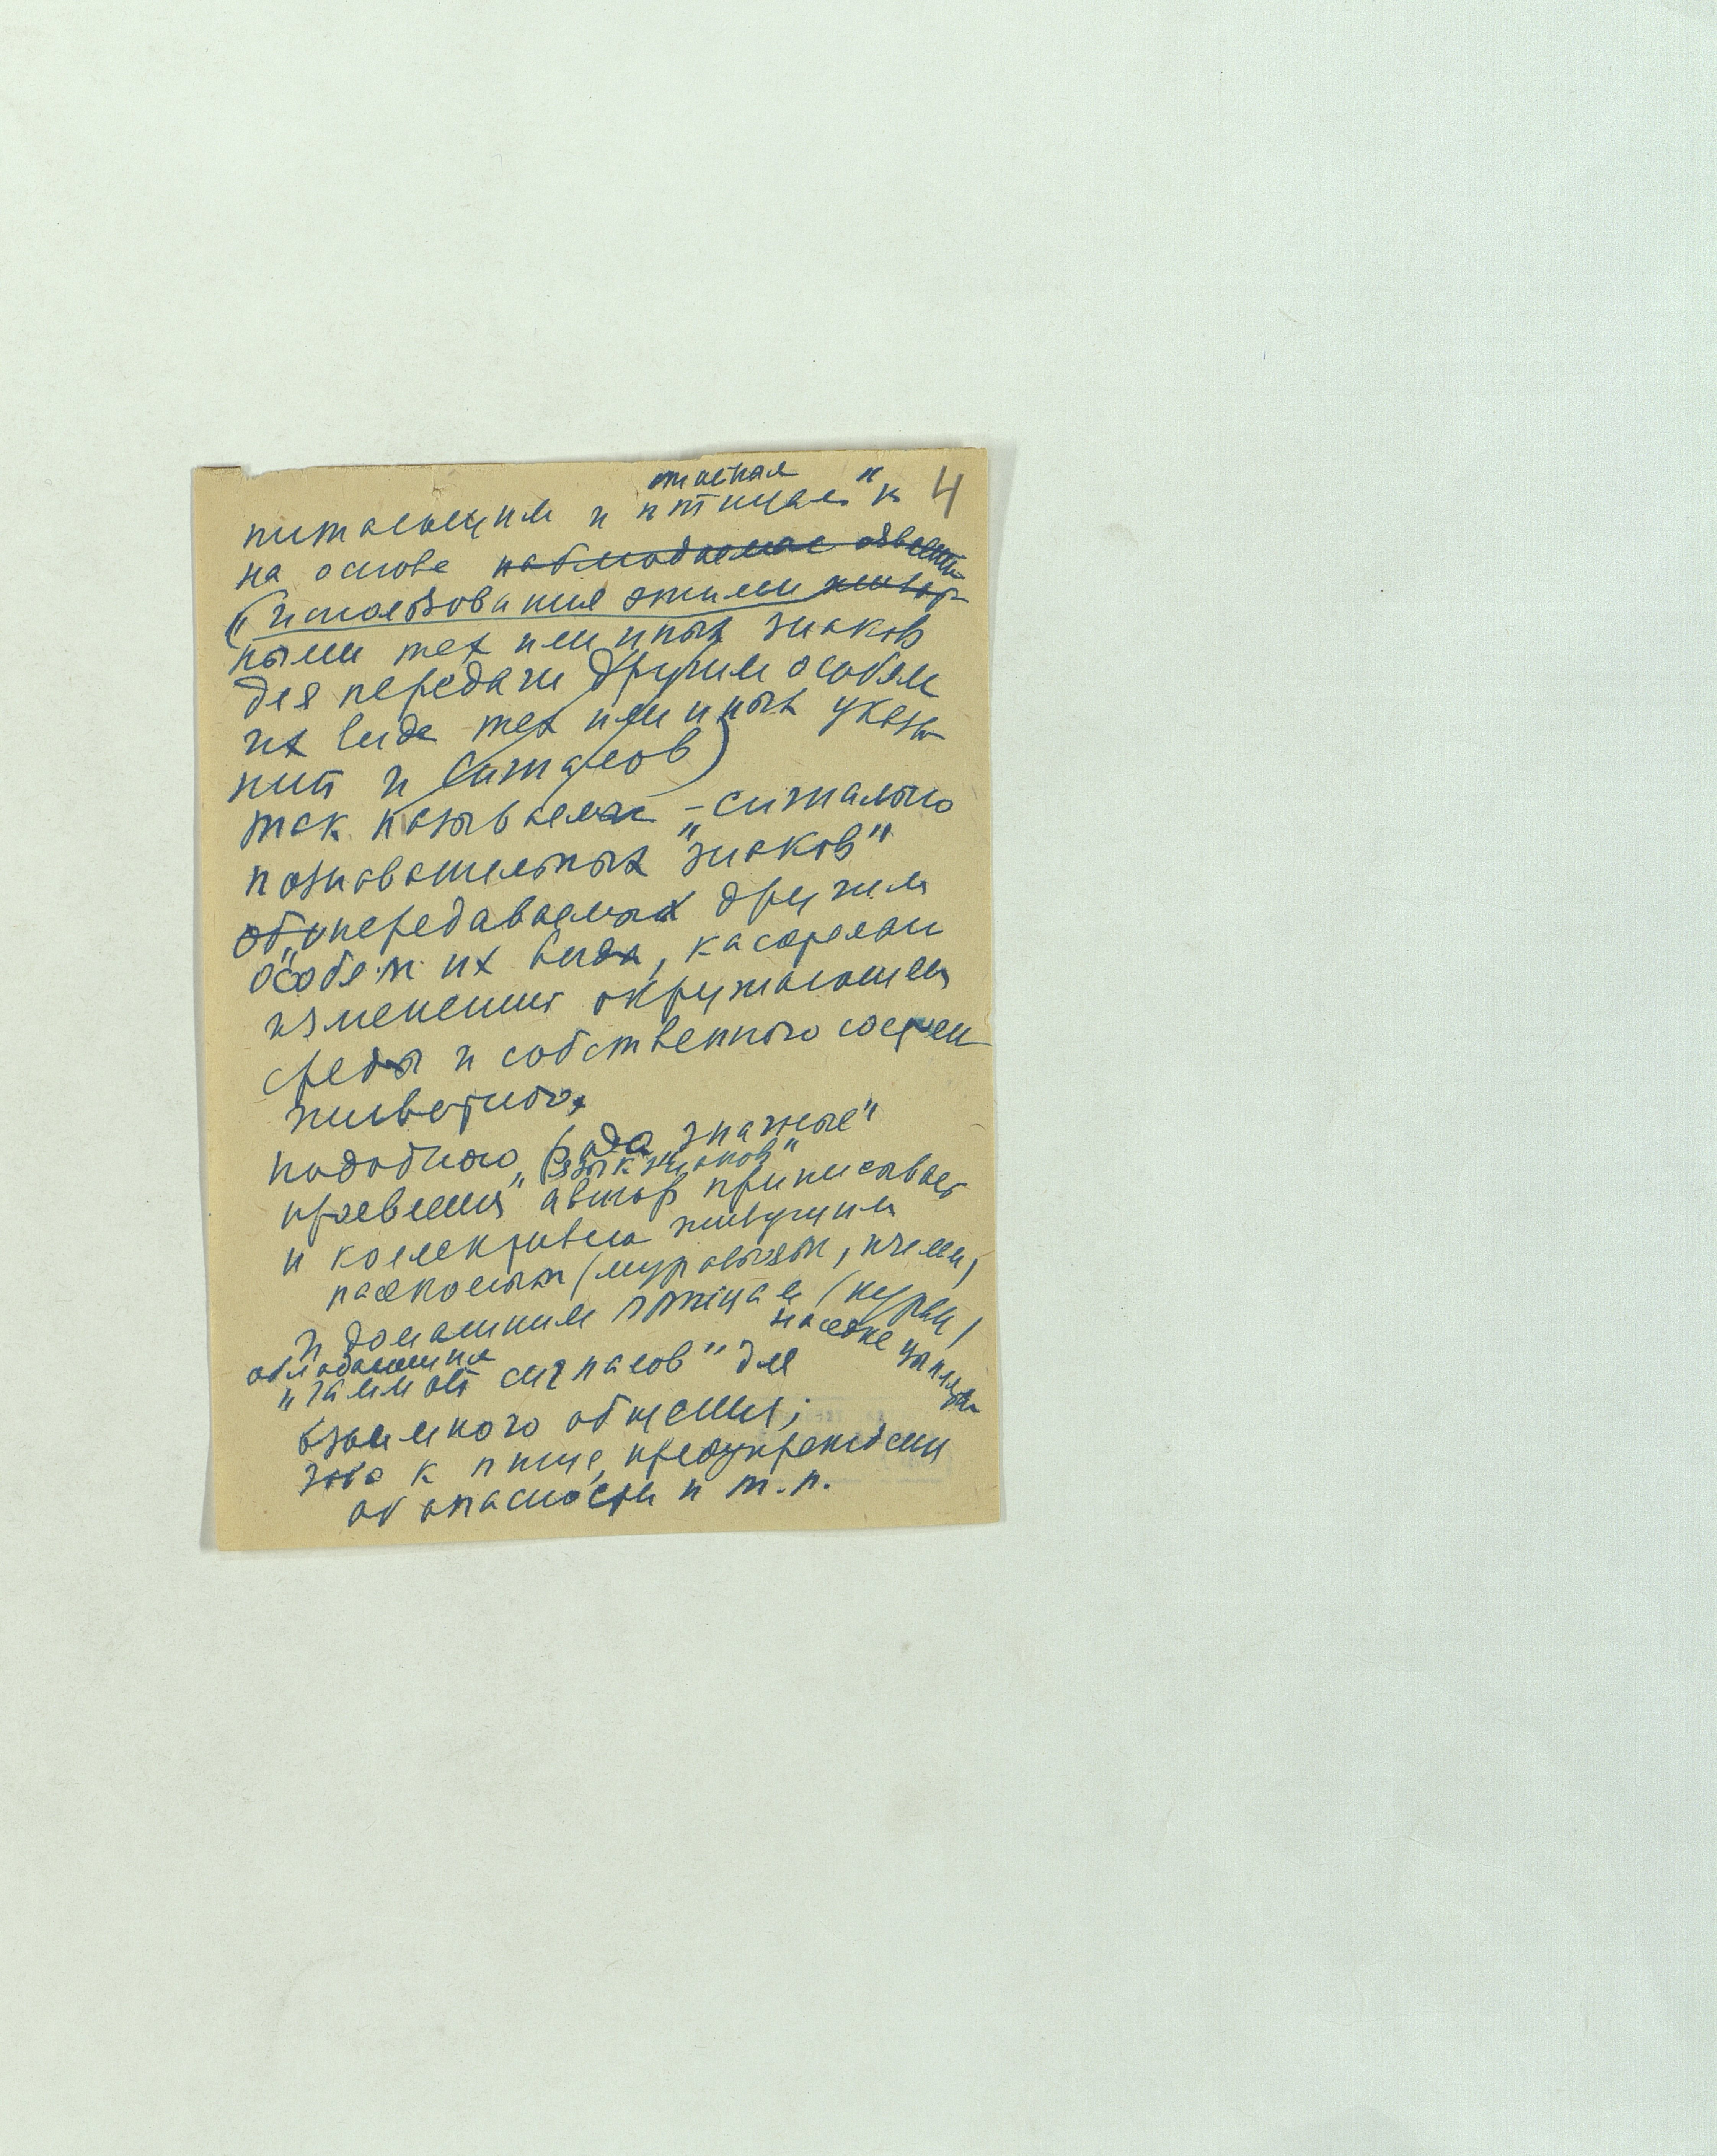 4
питающим и птицам" к
на основе наблюдаемых
(использования этими живот-
ными тех или иных знаков
для передачи другим особям
их вида тех или иных указа-
ний и сигналов)
так называемых -сигнально
познавательных "знаков"
передаваемых другим
особям их вида, касательно
изменения окружающей
среды и собственного состоян
животного.
подобного рода знаковые"
"язык знаков"
проявления автор приписывает
и коллективно живущим
насекомым (муравьям, пчелам,
и домашним птицам (курам,
наседке цыплятам
обладающим
"гаммой сигналов" для
взаимного общения;
зова к пище, предупреждении
об опасности и т.п.